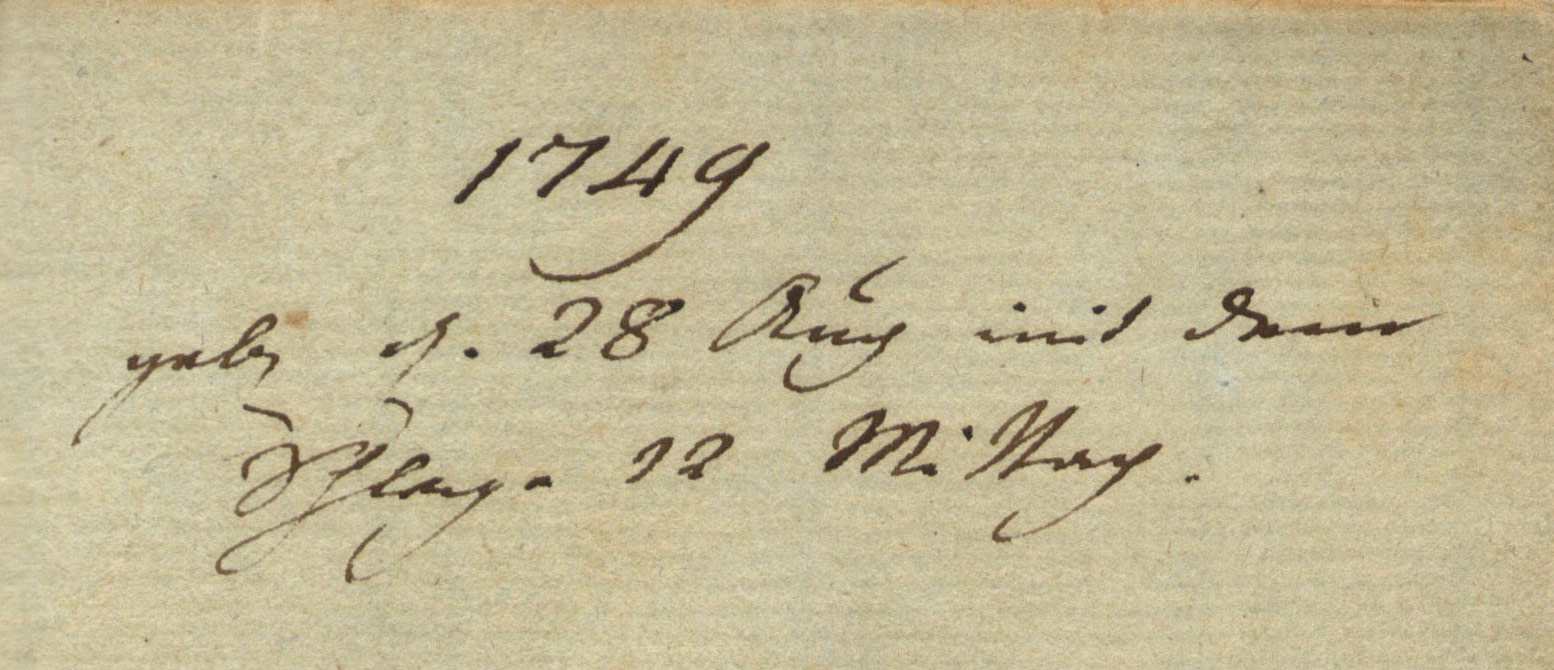 1749
geb. d. 28 Aug mit dem
Schlage 12 Mittag.